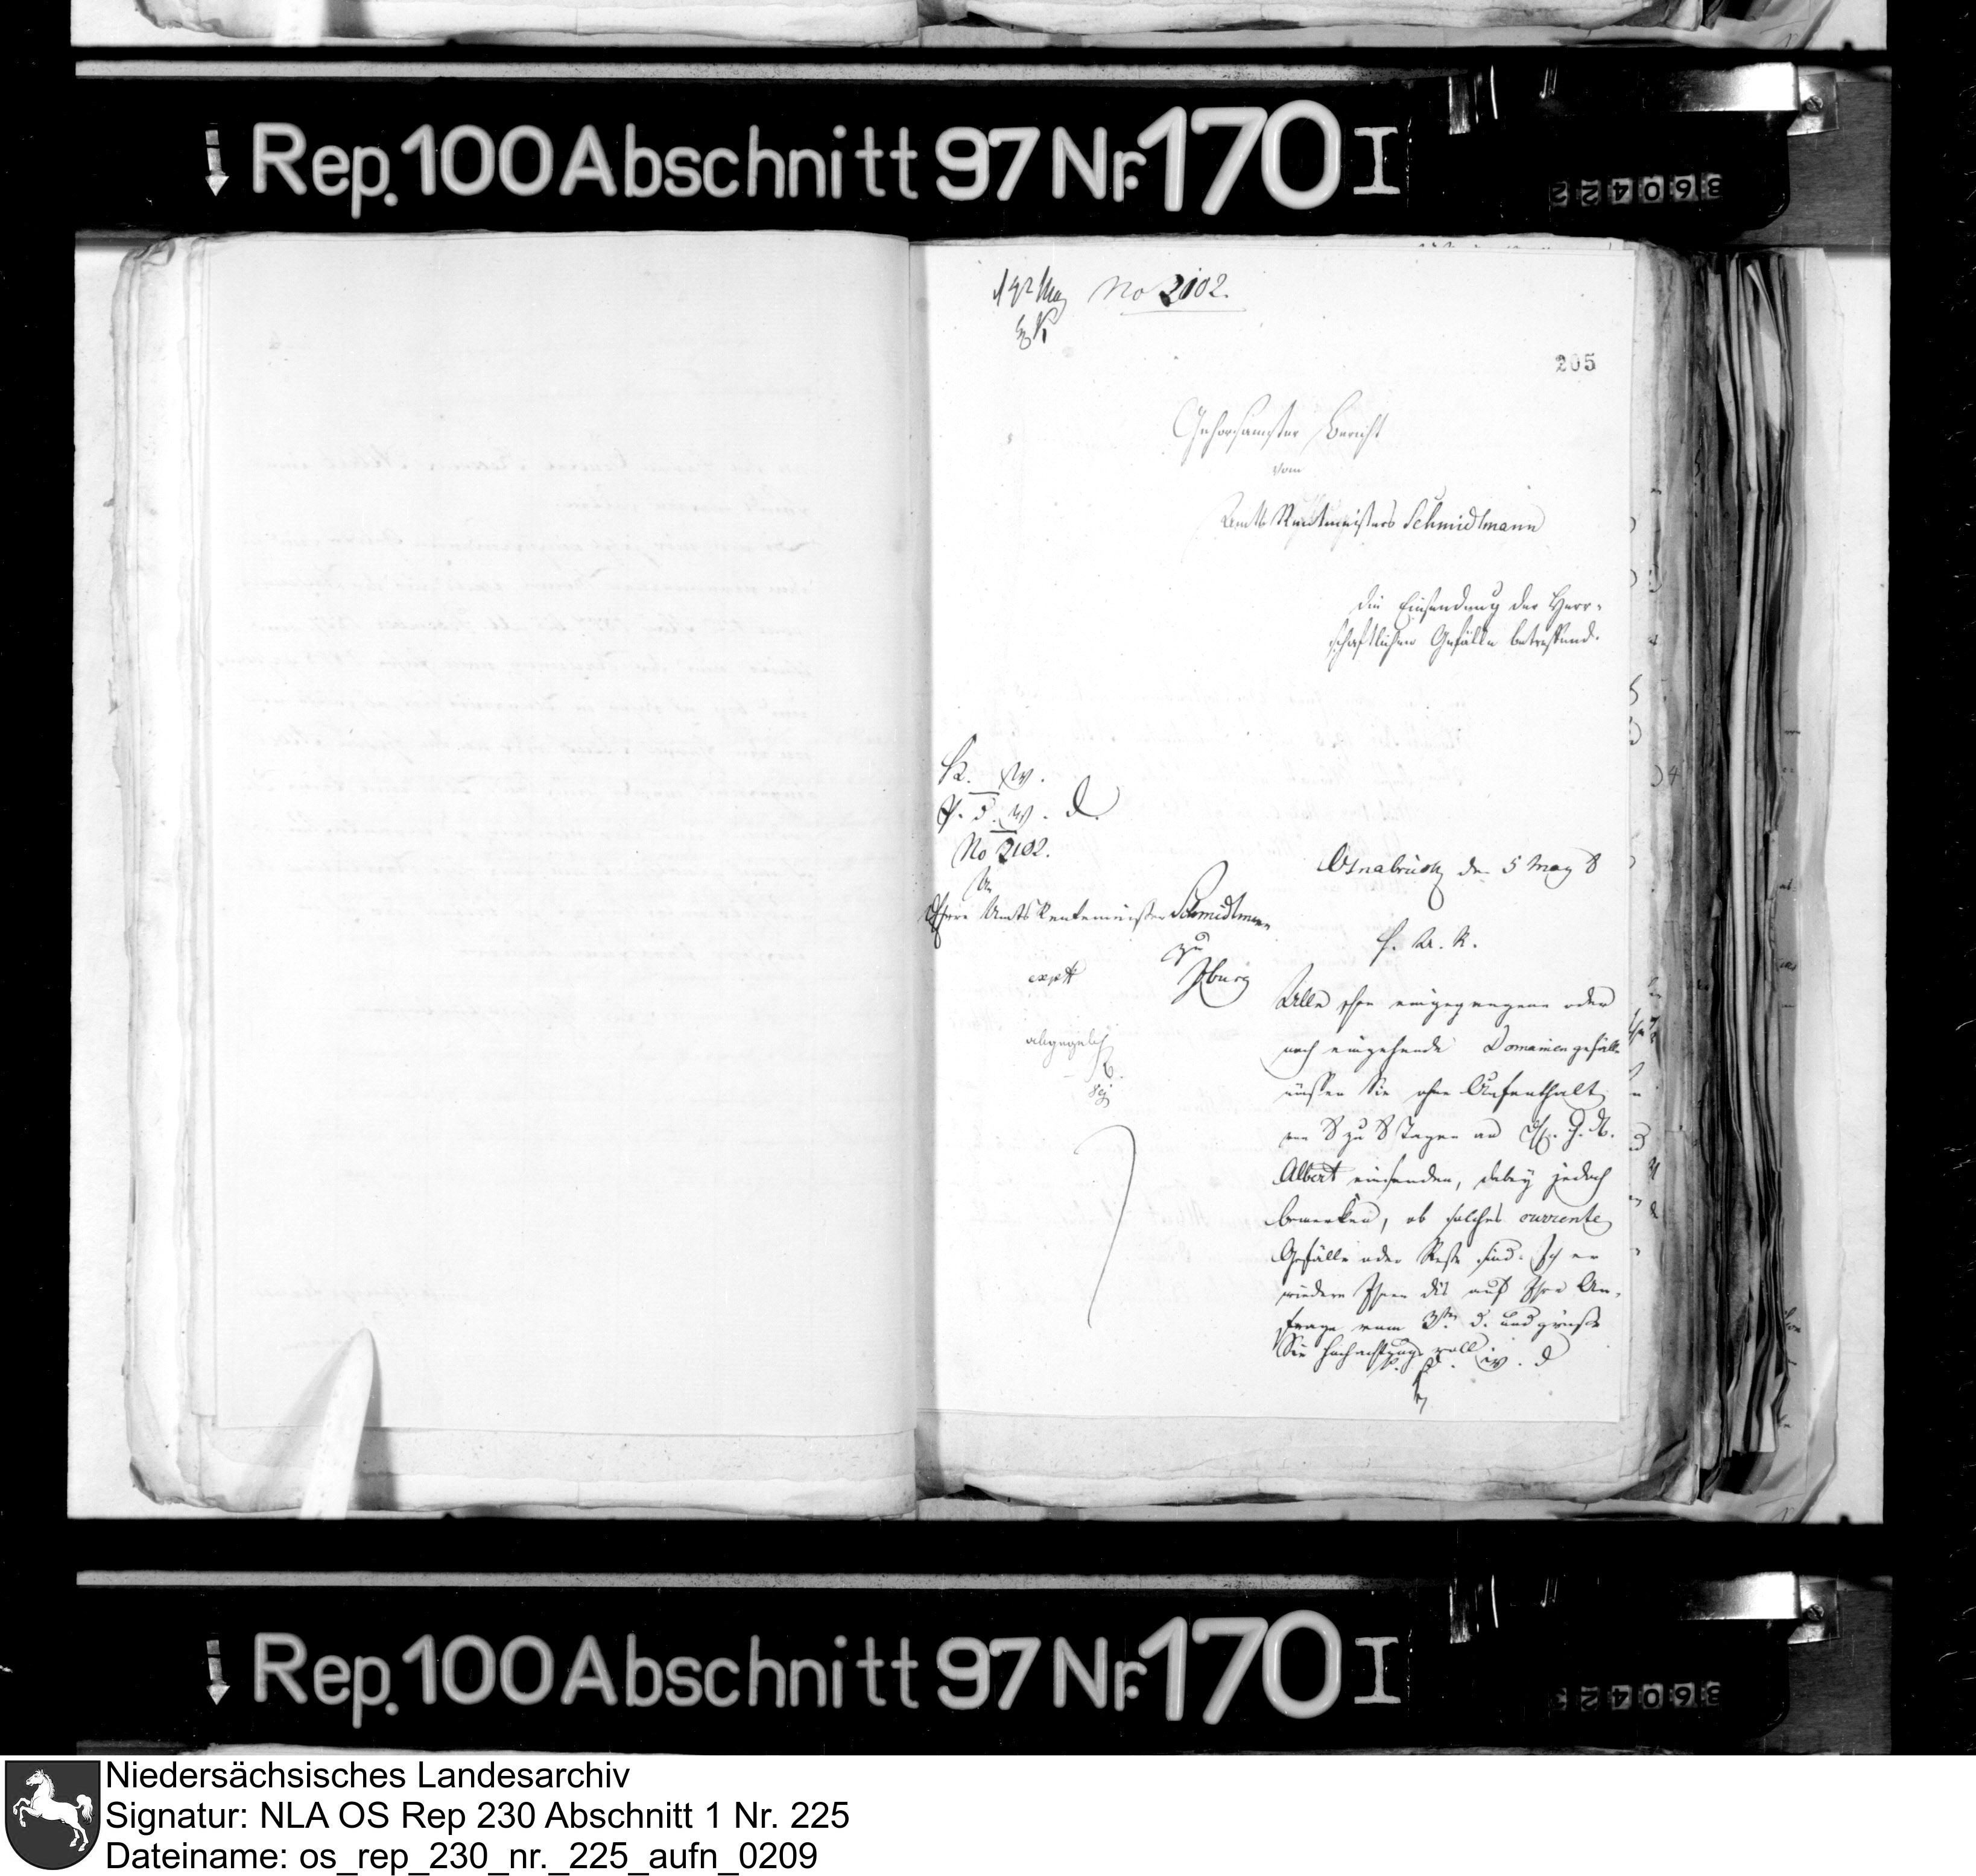 Rep. 100 Abschnitt 97 Nr. 170 I
360422
No 2102.
205
Gehorsamster Bericht
vom
Amts Rentmeisters Schmidtmann
die Einsendung der Herr-
schaftlichen Gefälle betreffend.
K. W.
P. S. W. d.
No 2102.
An
Herrn Amts Rentemeister Schmidtmann
zu
Iburg
Osnabrück den 5 May 8
expdt
Alle schon eingegangene oder
noch eingehende Domainengefälle
müssen Sie ohne Aufenthalt
von 8 zu 8 Tagen an
Albert einsenden, dabey jedoch
bemerken, ob solches currente
Gefälle oder Reste sind. Ich er
wiedere Ihnen dis auf Ihre An-
frage vom 3ten d. und grüße
Sie hochachtungsvoll.
Rep. 100 Abschnitt 97 Nr. 170 I
360423
Niedersächsisches Landesarchiv
Signatur: NLA OS Rep 230 Abschnitt 1 Nr. 225
Dateiname: os_rep_230_nr._225_aufn_0209